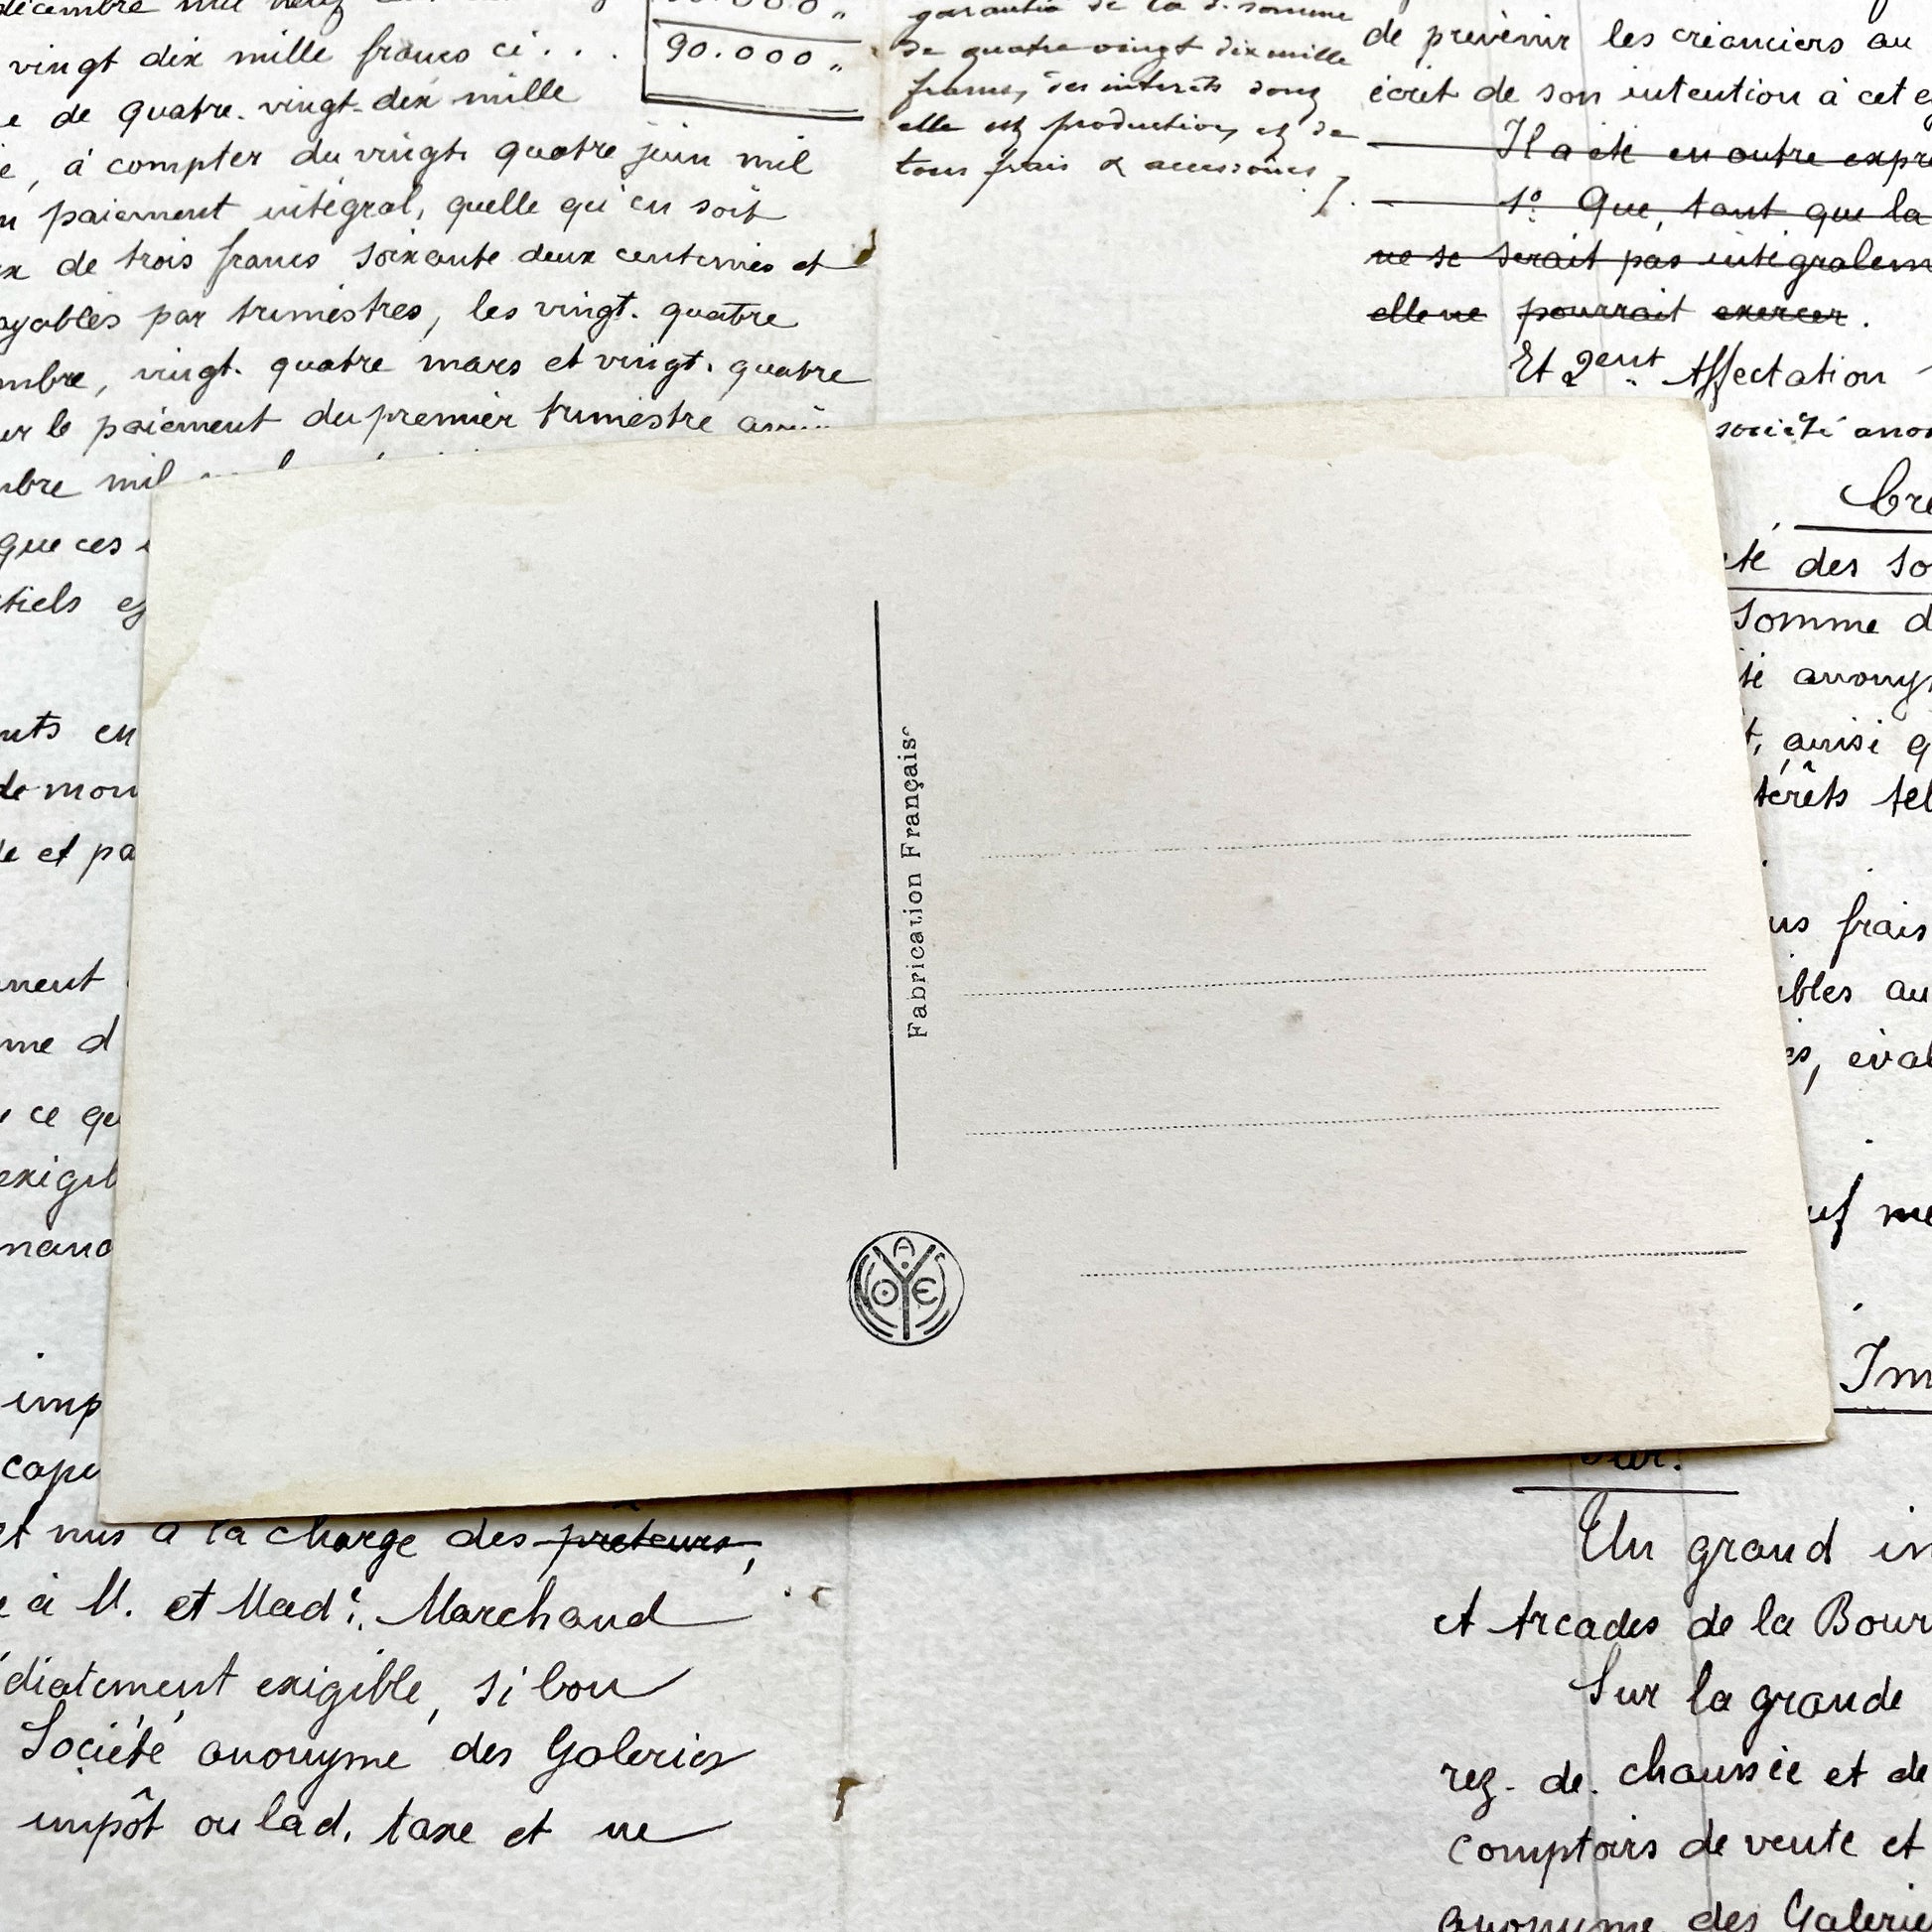 vingt dix mille francs ci . . .
90.000 "
de quatre-vingt-dix mille
, à compter du vingt quatre juin mil
paiement intégral, quelle qu'en soit
de trois francs soixante deux centimes et
ayables par trimestres, les vingt-quatre
mbre, vingt-quatre mars et vingt-quatre
le paiement du premier trimestre
mbre mil
que ces
tiels
en
de mon
et pa
ment
me d
ce qu
exigib
imp
capi
et mis à la charge des prêteurs,
à M. et Made. Marchand
diatement exigible, si bon
Société anonyme des Galeries
impôt ou lad. taxe et ne
garantie de la d. somme
de quatre vingt dix mille
francs, des intérêts dont
elle est production, et de
tous frais & accessoires
de prévenir les créanciers au
écrit de son intention à cet e
Il a été en outre expre
1º Que, tant que la
ne se serait pas intégralem
elle ne pourrait exercer.
Et 2ent Affectation
société anon
té des so
somme d
té anonym
, ainsi q
térêts tel
frais
ibles au
, éval
uf me
Im
Sur.
Un grand im
et Arcades de la Bour
Sur la grande
rez-de-chaussée et de
comptoirs de vente et
anonyme des Galerie
Fabrication Français
LOYAE